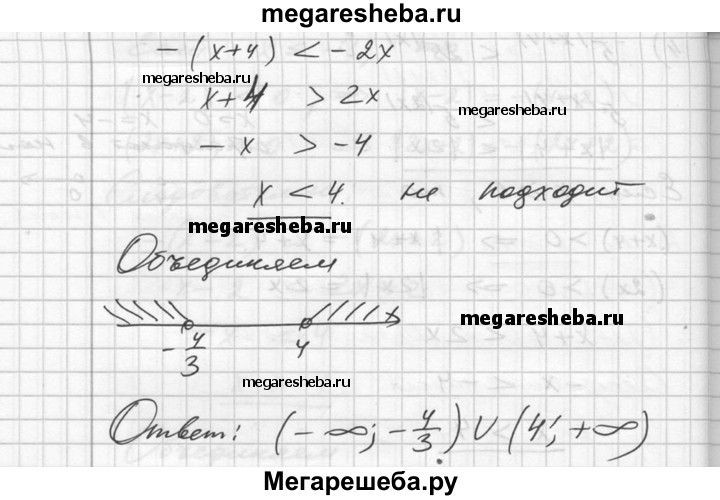 megaresheba.ru
-(x+4) < -2x
megaresheba.ru
x+4 > 2x
megaresheba.ru
-x > -4
x < 4. не подходит
megaresheba.ru
Объединяем
megaresheba.ru
-4/3 4
megaresheba.ru
Ответ: (-∞; -4/3) ∪ (4; +∞)
Мегарешеба.ру